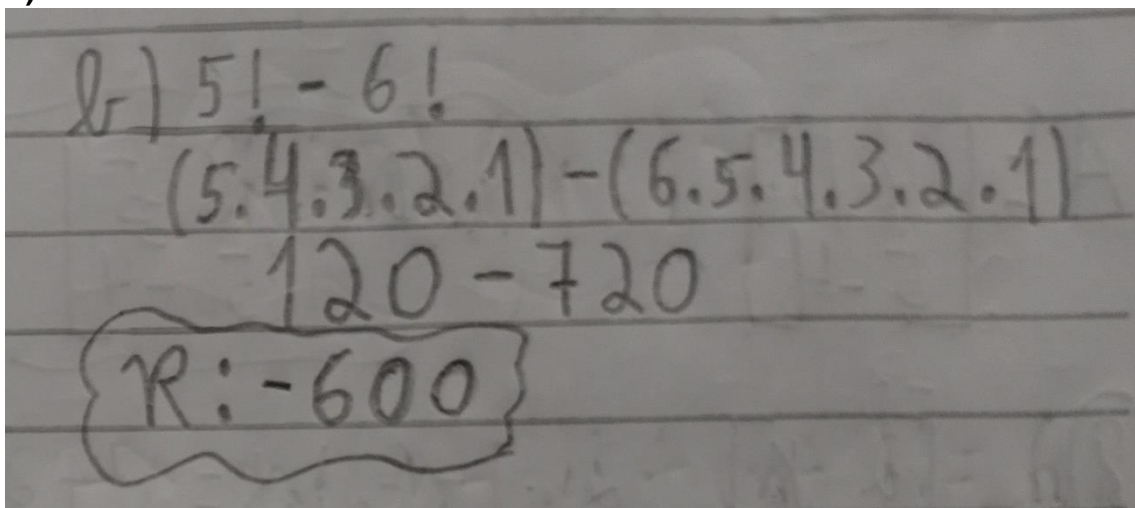 b) 5! - 6!
(5.4.3.2.1) - (6.5.4.3.2.1)
120 - 720
R: -600